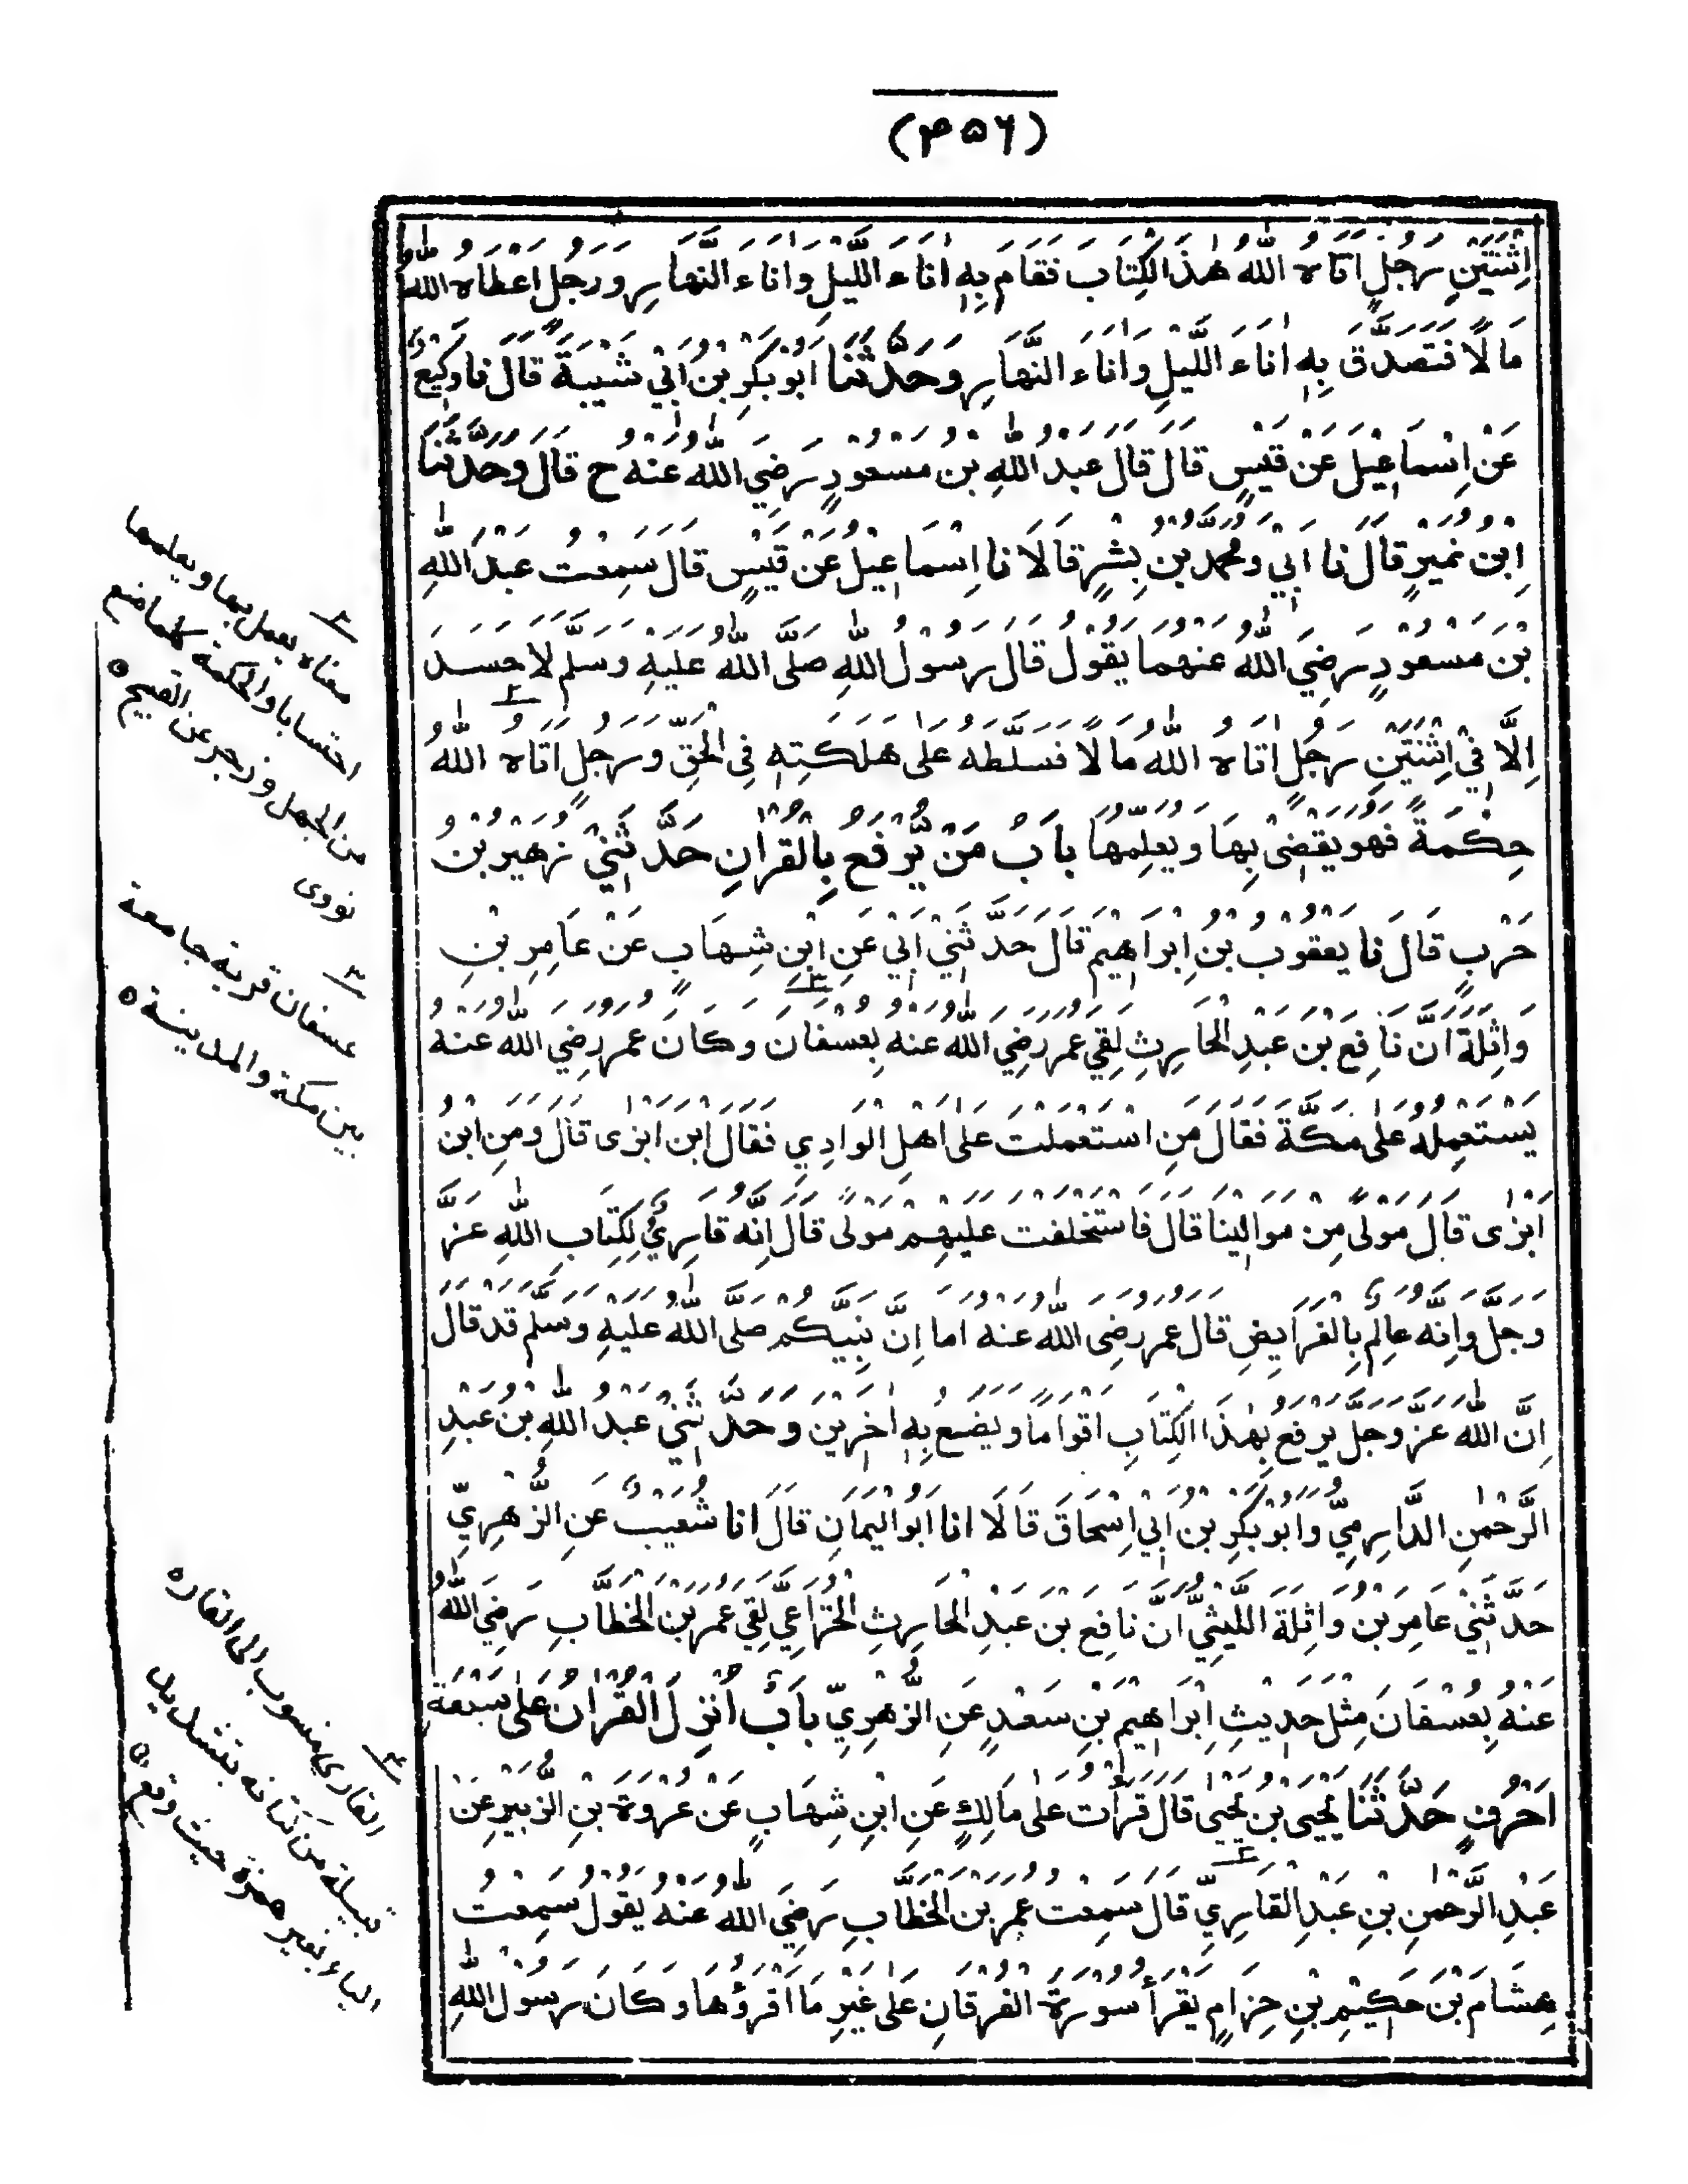 (٣٥٦)
اِثْنَتَيْنِ رَجُلٍ اٰتَاهُ اللّٰهُ هٰذَا الْكِتَابَ فَقَامَ بِهٖ اٰنَاءَ اللَّيْلِ وَاٰنَاءَ النَّهَارِ وَرَجُلٍ اَعْطَاهُ اللّٰهُ
مَالًا فَتَصَدَّقَ بِهٖ اٰنَاءَ اللَّيْلِ وَاٰنَاءَ النَّهَارِ وَحَدَّثَنَا اَبُوْ بَكْرِ بْنُ اَبِيْ شَيْبَةَ قَالَ نَا وَكِيْعٌ
عَنْ اِسْمَاعِيْلَ عَنْ قَيْسٍ قَالَ قَالَ عَبْدُ اللّٰهِ بْنُ مَسْعُوْدٍ رَضِيَ اللّٰهُ عَنْهُ ح قَالَ وَحَدَّثَنَا
اِبْنُ نُمَيْرٍ قَالَ نَا اَبِيْ وَمُحَمَّدُ بْنُ بِشْرٍ قَالَا نَا اِسْمَاعِيْلُ عَنْ قَيْسٍ قَالَ سَمِعْتُ عَبْدَ اللّٰهِ
بْنَ مَسْعُوْدٍ رَضِيَ اللّٰهُ عَنْهُمَا يَقُوْلُ قَالَ رَسُوْلُ اللّٰهِ صَلَّى اللّٰهُ عَلَيْهِ وَسَلَّمَ لَا حَسَدَ
اِلَّا فِيْ اثْنَتَيْنِ رَجُلٍ اٰتَاهُ اللّٰهُ مَالًا فَسَلَّطَهُ عَلٰى هَلَكَتِهٖ فِى الْحَقِّ وَرَجُلٍ اٰتَاهُ اللّٰهُ
حِكْمَةً فَهُوَ يَقْضِىْ بِهَا وَيُعَلِّمُهَا بَابُ مَنْ يُّرْفَعُ بِالْقُرْاٰنِ حَدَّثَنِيْ زُهَيْرُ بْنُ
حَرْبٍ قَالَ نَا يَعْقُوْبُ بْنُ اِبْرَاهِيْمَ قَالَ حَدَّثَنِيْ اَبِيْ عَنِ ابْنِ شِهَابٍ عَنْ عَامِرِ بْنِ
وَاثِلَةَ اَنَّ نَافِعَ بْنَ عَبْدِ الْحَارِثِ لَقِيَ عُمَرَ رَضِيَ اللّٰهُ عَنْهُ بِعُسْفَانَ وَكَانَ عُمَرُ رَضِيَ اللّٰهُ عَنْهُ
يَسْتَعْمِلُهُ عَلٰى مَكَّةَ فَقَالَ مَنِ اسْتَعْمَلْتَ عَلٰى اَهْلِ الْوَادِيْ فَقَالَ ابْنَ اَبْزٰى قَالَ وَمَنِ ابْنُ
اَبْزٰى قَالَ مَوْلًى مِنْ مَوَالِيْنَا قَالَ فَاسْتَخْلَفْتَ عَلَيْهِمْ مَوْلًى قَالَ اِنَّهُ قَارِئٌ لِكِتَابِ اللّٰهِ عَزَّ
وَجَلَّ وَاِنَّهُ عَالِمٌ بِالْفَرَايِضِ قَالَ عُمَرُ رَضِيَ اللّٰهُ عَنْهُ اَمَا اِنَّ نَبِيَّكُمْ صَلَّى اللّٰهُ عَلَيْهِ وَسَلَّمَ قَدْ قَالَ
اِنَّ اللّٰهَ عَزَّ وَجَلَّ يَرْفَعُ بِهٰذَا الْكِتَابِ اَقْوَامًا وَيَضَعُ بِهٖ اٰخَرِيْنَ وَحَدَّثَنِيْ عَبْدُ اللّٰهِ بْنُ عَبْدِ
الرَّحْمٰنِ الدَّارِمِيُّ وَاَبُوْ بَكْرِ بْنُ اَبِيْ اِسْحَاقَ قَالَا اَنَا اَبُو الْيَمَانِ قَالَ اَنَا شُعَيْبٌ عَنِ الزُّهْرِيِّ
حَدَّثَنِيْ عَامِرُ بْنُ وَاثِلَةَ اللَّيْثِيُّ اَنَّ نَافِعَ بْنَ عَبْدِ الْحَارِثِ الْخُزَاعِيَّ لَقِيَ عُمَرَ بْنَ الْخَطَّابِ رَضِيَ اللّٰهُ
عَنْهُ بِعُسْفَانَ مِثْلَ حَدِيْثِ اِبْرَاهِيْمَ بْنِ سَعْدٍ عَنِ الزُّهْرِيِّ بَابُ اُنْزِلَ الْقُرْاٰنُ عَلٰى سَبْعَةِ
اَحْرُفٍ حَدَّثَنَا يَحْيَى بْنُ يَحْيٰى قَالَ قَرَأْتُ عَلٰى مَالِكٍ عَنِ ابْنِ شِهَابٍ عَنْ عُرْوَةَ بْنِ الزُّبَيْرِ عَنْ
عَبْدِ الرَّحْمٰنِ بْنِ عَبْدِ الْقَارِيِّ قَالَ سَمِعْتُ عُمَرَ بْنَ الْخَطَّابِ رَضِيَ اللّٰهُ عَنْهُ يَقُوْلُ سَمِعْتُ
هِشَامَ بْنَ حَكِيْمِ بْنِ حِزَامٍ يَقْرَأُ سُوْرَةَ الْفُرْقَانِ عَلٰى غَيْرِ مَا اَقْرَؤُهَا وَكَانَ رَسُوْلُ اللّٰهِ
٢
معناه يعمل بها ويعلمها
احتسابا والحكمة كلما منع
من الجهل وزجر عن القبيح ٥
نووى
٣
عسفان قرية جامعة
بين مكة والمدينة ٥
٤
القاري منسوب الى القاره
قبيلة من كنانه بتشديد
الياء بغير همزة حيث وقع ٥